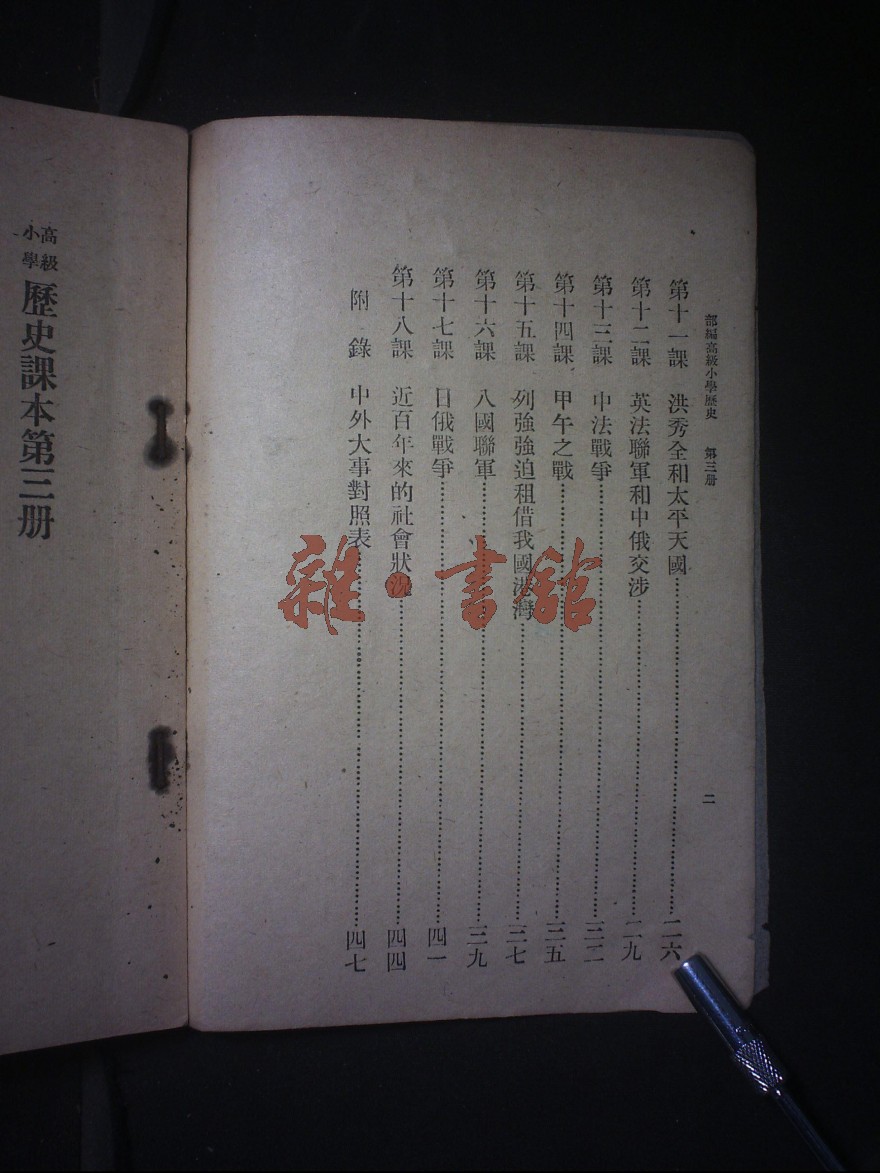 部編高級小學歷史　第三册
二
第十一課　洪秀全和太平天國……二六
第十二課　英法聯軍和中俄交涉……二九
第十三課　中法戰爭……三二
第十四課　甲午之戰……三五
第十五課　列強強迫租借我國港灣……三七
第十六課　八國聯軍……三九
第十七課　日俄戰爭……四一
第十八課　近百年來的社會狀況……四四
附　錄　中外大事對照表……四七
高級小學
歷史課本第三册
雜·書館